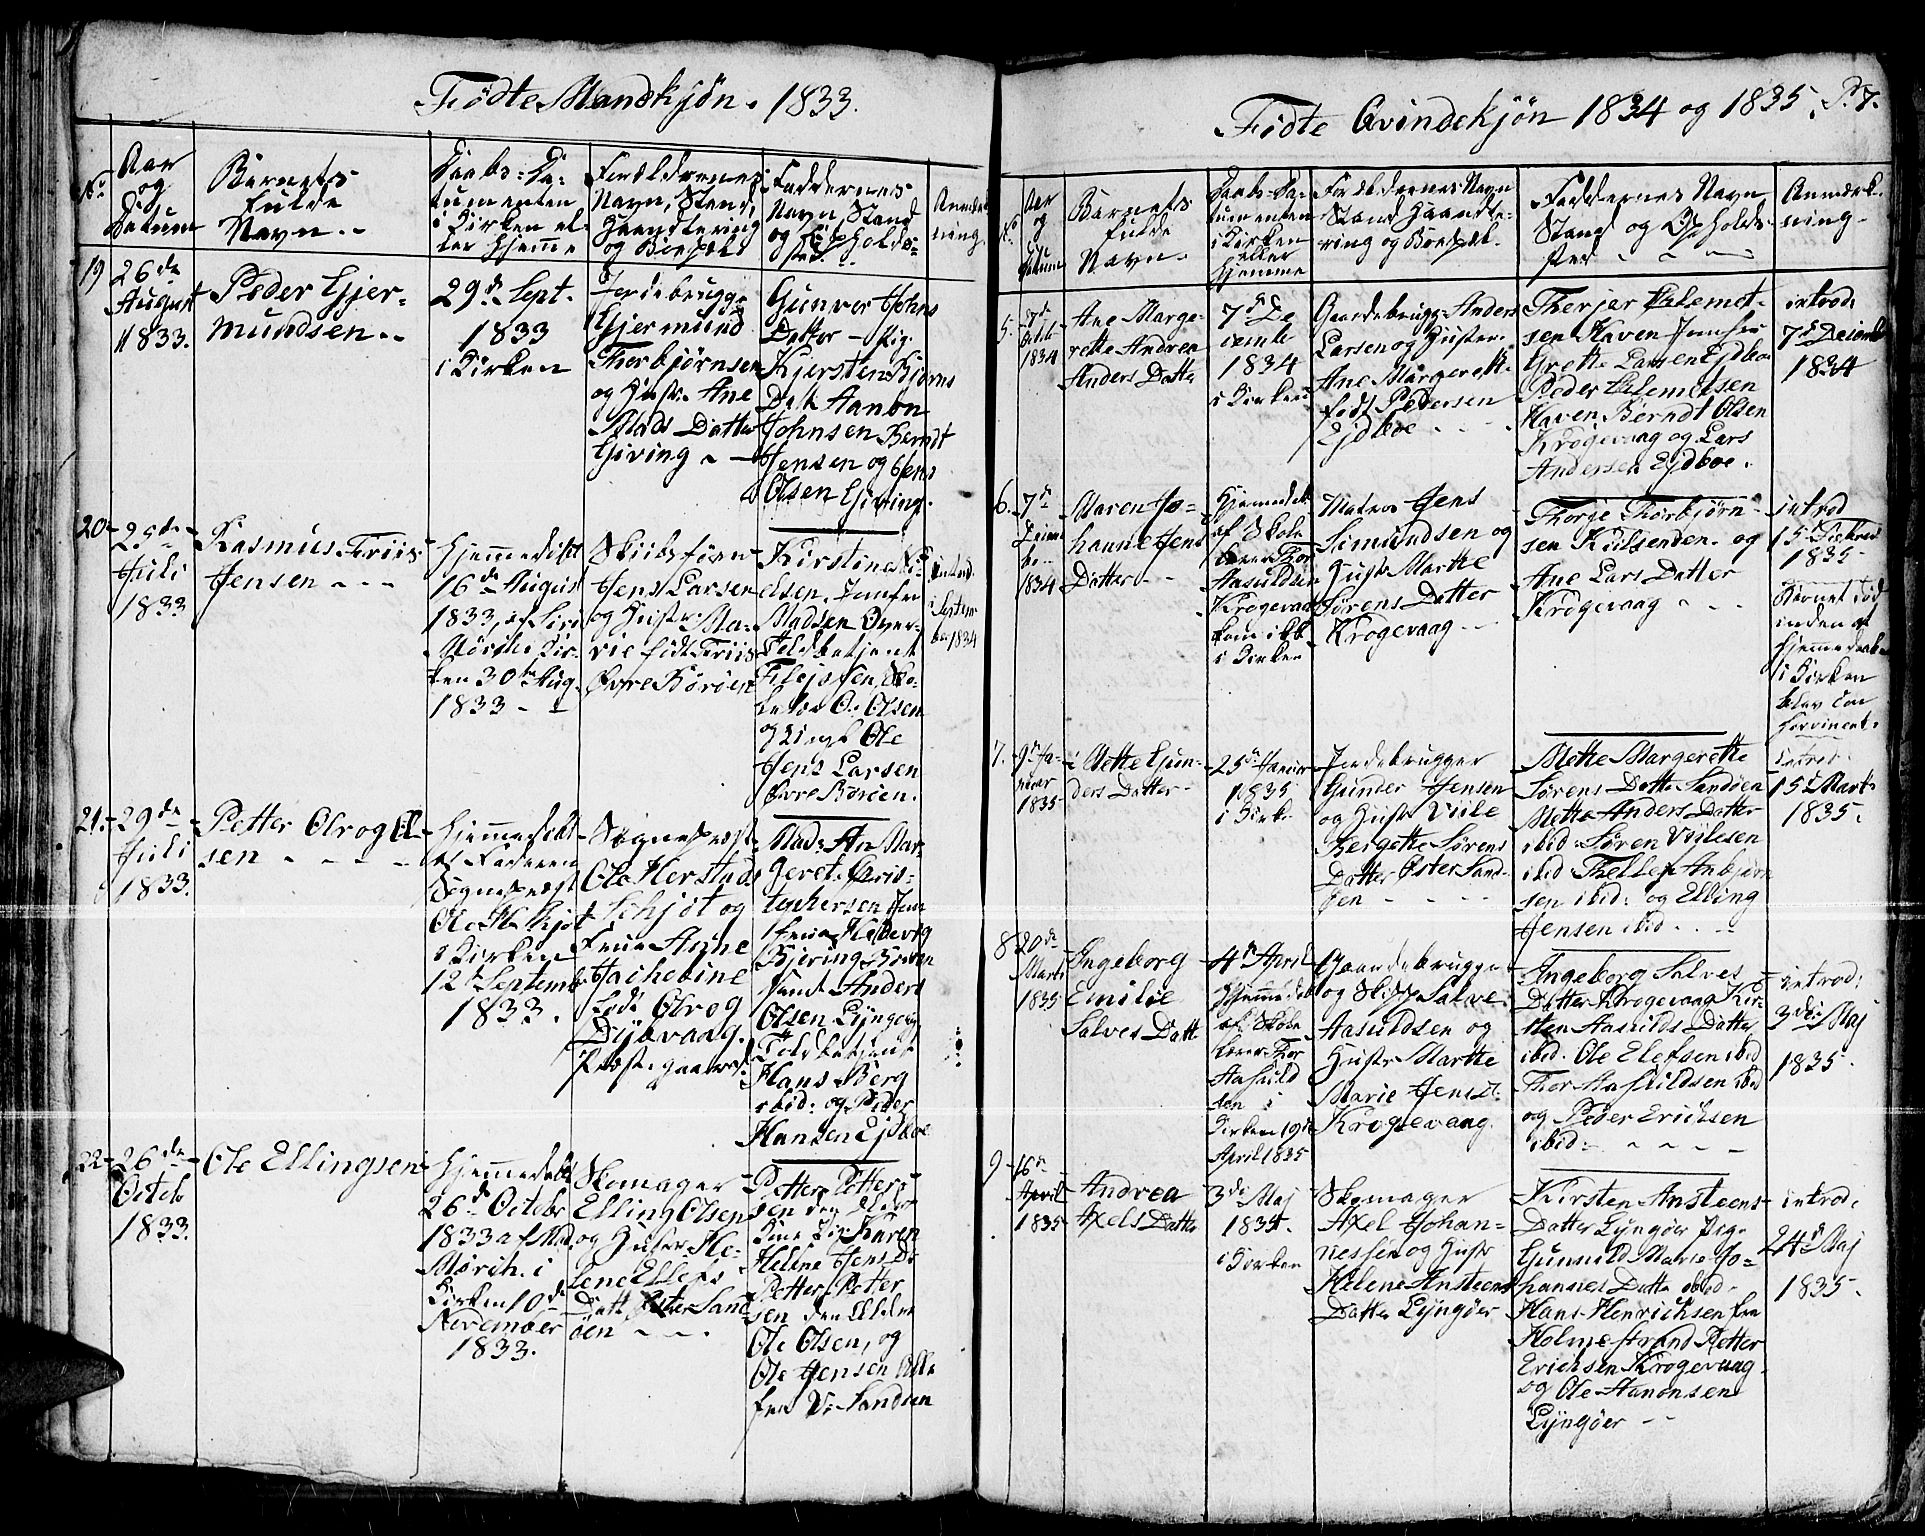 Fødte Mandkjøn. 1833.
No
Aar
og
Datum
Barnets
fulde
Navn.
Daabs-Da-
tum enten
i Kirken el-
ler Hjemme
Forældrenes
Navn, Stand,
Haandtering
og Bopæl
Faddernes
Navn, Stand
og Opholds-
sted.
Anmærk
ning.
19
26de
August
1833.
Peder Gjer-
mundsen
29de Sept.
1833
i Kirken
Jordbrugger
Gjermund
Thorbjørnsen
og Hustr. Ane
Mads Datter
Giving
Gunvor Johns
Datter - Pig.
Kjersten Biørns
Datt. Aanon
Johnsen Berndt
Jensen og Jens
Olsen Giving.
20
25de
Juli
1833
Rasmus Friis
Jensen
Hjemmedøbt
16de August
1833, af
Mörch i Kir-
ken 30te Aug.
1833
Skibsfører
Jens Larsen
og Hustr. Ma-
rie født Friis
Øvre Borøen
Kirstine Ni-
elsen, Jomfru
Madsen Over-
Toldbetjent
Flejsjen, Sko-
lelær. O. Olsen
og Ungk. Ole
Jens Larsen
Øvre Borøen.
introd.
i Septem
ber 1834
21.
29de
Juli
1833.
Petter Olrog Ol-
sen
Hjemmedøbt
af Faderen
Sognepræst
Ole H. Schjøt
i Kirken
12te Septembr
1833.
Sognepræst
Ole Herstad
Schjøt og
Frue Anne
Jachobine
født Olrog
Dybvaag
Præstegaard.
Mad. An. Mar-
geret. Chris-
tophersen Jom
frue Hedevig
Bjering Borøen
samt Anders
Olsen Lyngør
Toldbetjent
Hans Berg
ibid: og Peder
Hansen Ejdboe
22
26de
Octob
1833.
Ole Ellingsen
Hjemmedøbt
26de Octobr
1833 af Mad.
Mörch. i
Kirken 10de
November
1833.
Skomager
Elling Olsen
og Hustr. He-
lene Ellefs
Datt. Øster Sand
øen
Petter Petter-
sen den Eldres
Kone Karen
Helene Jens D.
Petter Petter
sen den Eldre
Ole Olsen, og
Ole Jensen Alle
fra V. Sandøen
Fødte Qvindekjøn 1834 og 1835. P. 7.
No.
Aar
og
Datum
Barnets
fulde
Navn.
Daabs-Da-
tum enten
i Kirken
eller
Hjemme
Forældrenes Navn
Stand Haandte-
ring og Bopæl.
Faddernes Navn
Stand og Opholds-
sted
Anmærk-
ning.
5.
7de
Octob
1834
Ane Marge-
rethe Andrea
Anders Datte
7de De
cemb
1834
i Kirken
Gaardebrugg. Anders
Larsen og Hustr.
Ane Margereth.
født Pedersen
Ejdboe
Therjer Clemet-
sen Haven Jomfru
Grethe Larsen Ejdboe
Peder Clemetsen
Haven Berndt Olsen
Krogevaag og Lars
Andersen Ejdboe.
introd:
7de Decemb
1834
6.
7de
Decem
be
1834
Maren Jo-
hanne Jens
Datter
Hjemmedøbt
af Skole
lærer Thor
Aasuldsen
Krogevaag
kom ikke
i Kirken
Matros Jens
Simundsen og
Hustr. Marthe
Sørens Datter
Krogevaag
Thorge Thorbjørn-
sen Kielsenden. og
Ane Lars Datter
Krogevaag
introd
15de Februar
1835
Barnet død
inden at
Hjemmedaaben
i Kirken
blev con
firmeret.
7.
9de Ja-
nuar
1835
Mette Gun-
ders Datter
25de Januar
1835
i Kirke
Jordebrugger
Gunder Jensen
og Hustr Viile
Bergethe Sørens
Datter Øster Sand-
øen
Mette Margerethe
Sørens Datte Sandøen
Mette Anders Datter
ibid Søren Viilesen
ibid Thellef Anbjørn
sen ibid: og Elling
Jensen ibid
introd
15de Marts
1835.
8
20de
Marts
1835
Ingeborg
Emilie
Salves Datt
4de April
Hjemmedøb
af Skole
lærer Thor
Aasuld
sen i
Kirken 19de
April 1835
Gaardebrugge
og Skipp. Salve.
Aasuldsen og
Hustr. Marthe
Marie Jens D.
Krogevaag.
Ingeborg Salves
Datter Krogevaag Kir-
sten Aasulds Datter
ibid. Ole Elefsen ibid
Thor Aasuldsen ibid
og Peder Ericksen
ibid:
introd:
3de Maj
1835.
9
16de
April
1835
Andrea
Axels Datte
3de Maj
1835.
i Kirken
Skomager
Axel Johan-
nessen og Hustr
Helene Ansteens
Datte Lyngøer
Kirsten Ansteens
Datter Lyngøer Pige
Gunnild Marie Jo-
hannes Datte ibid
Hans Henrichsen fra
Holmestrand Petter
Ericksen Krogevaag.
og Ole Aanonsen
Lyngøer
introd:
24de Maj
1835.